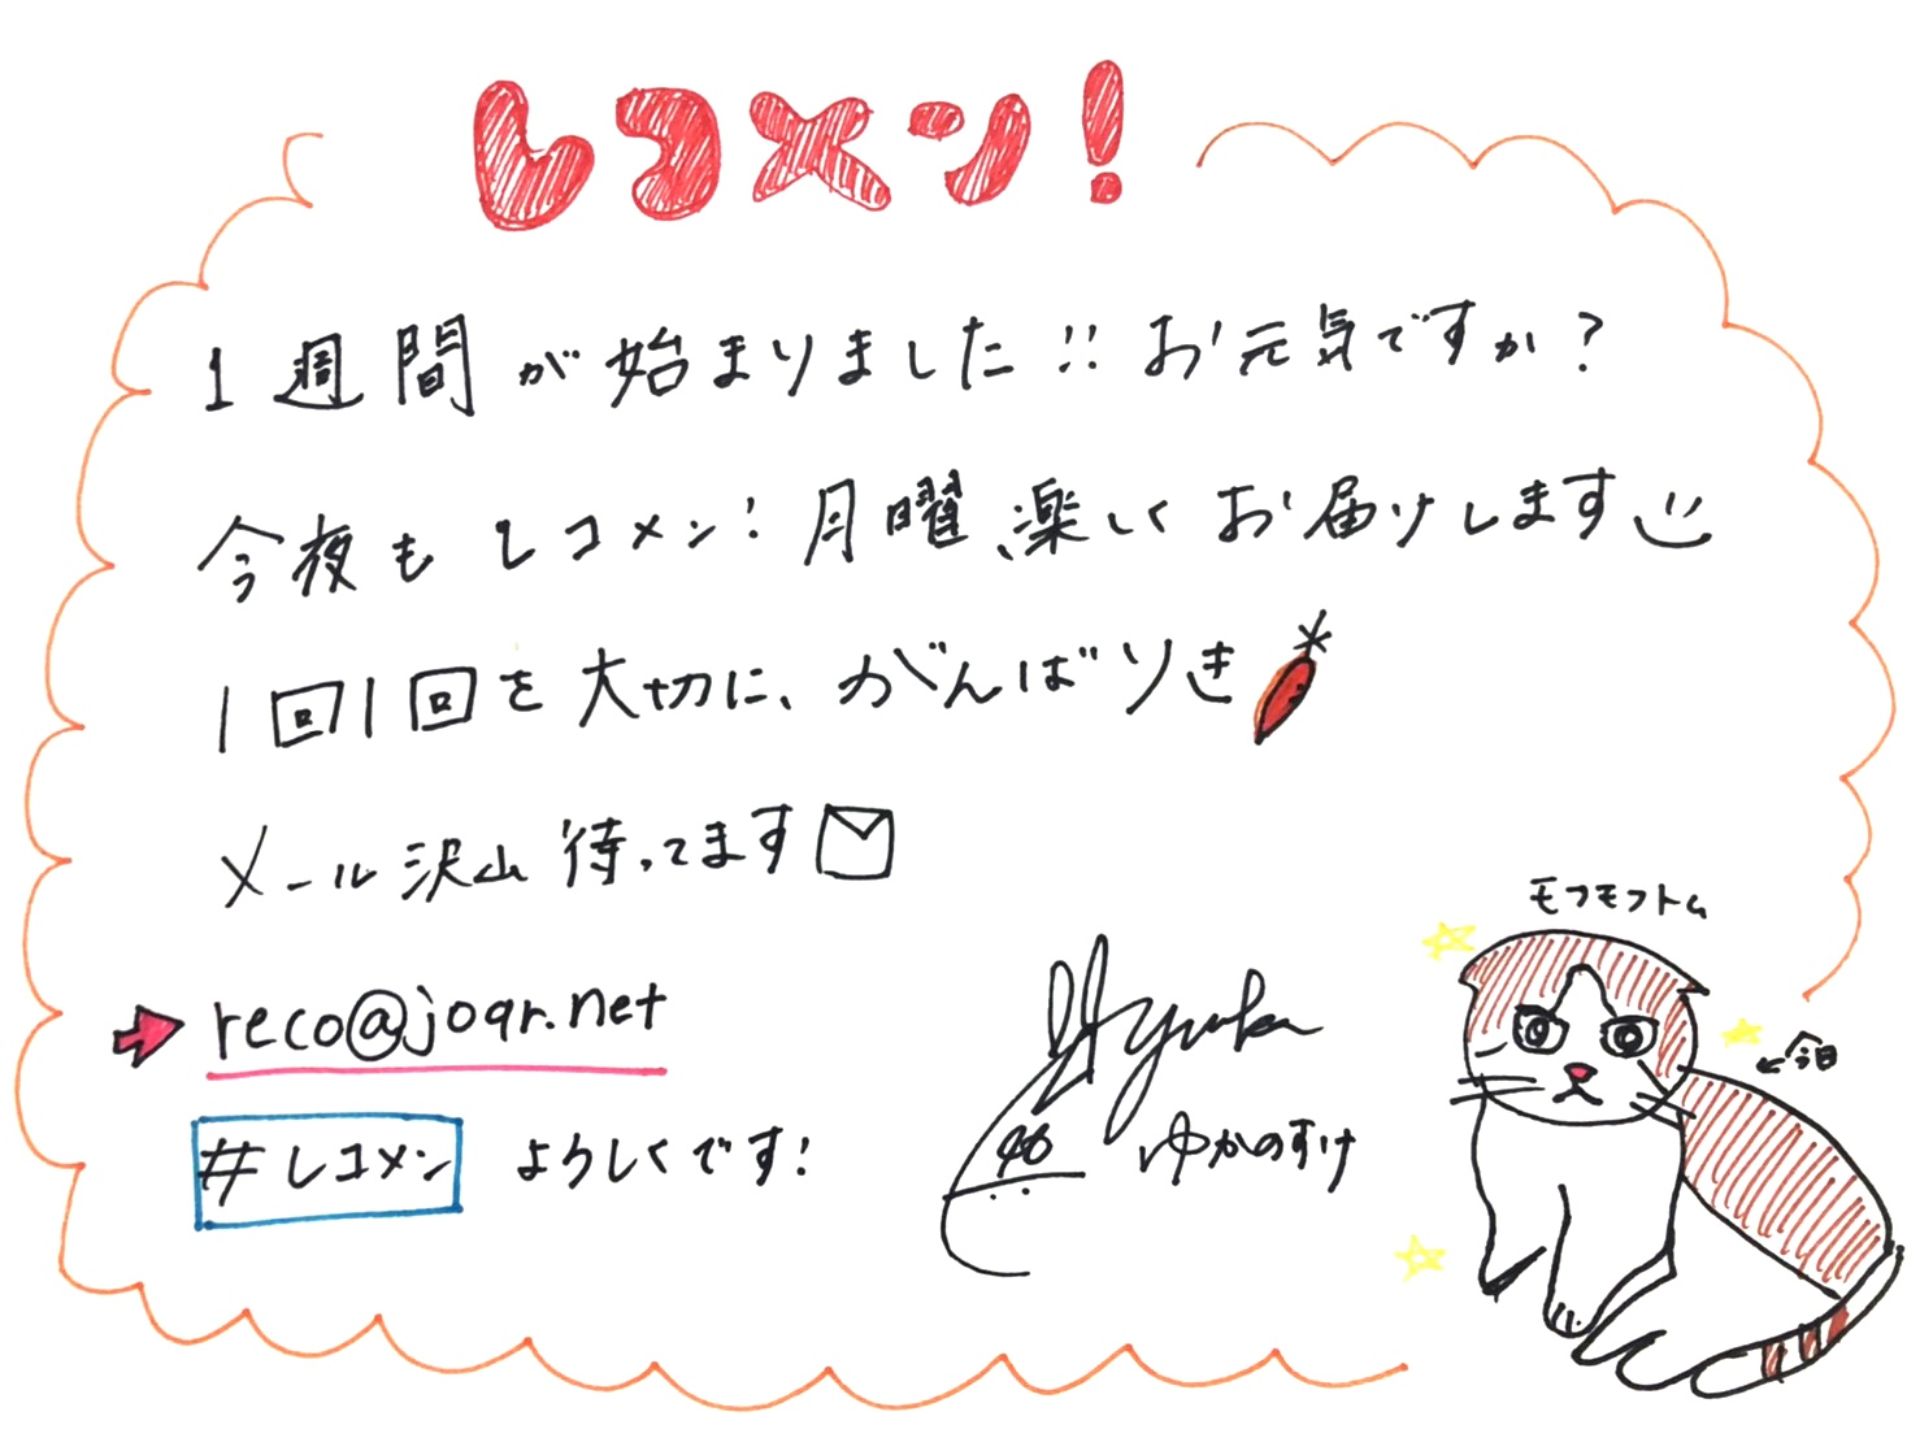 レコメン!
1週間が始まりました!!お元気ですか?
今夜もレコメン!月曜、楽しくお届けします
1回1回を大切に、がんばりき
メール沢山待ってます
reco@joqr.net
#レコメン よろしくです!
ゆかのすけ
モフモフトム
←今日